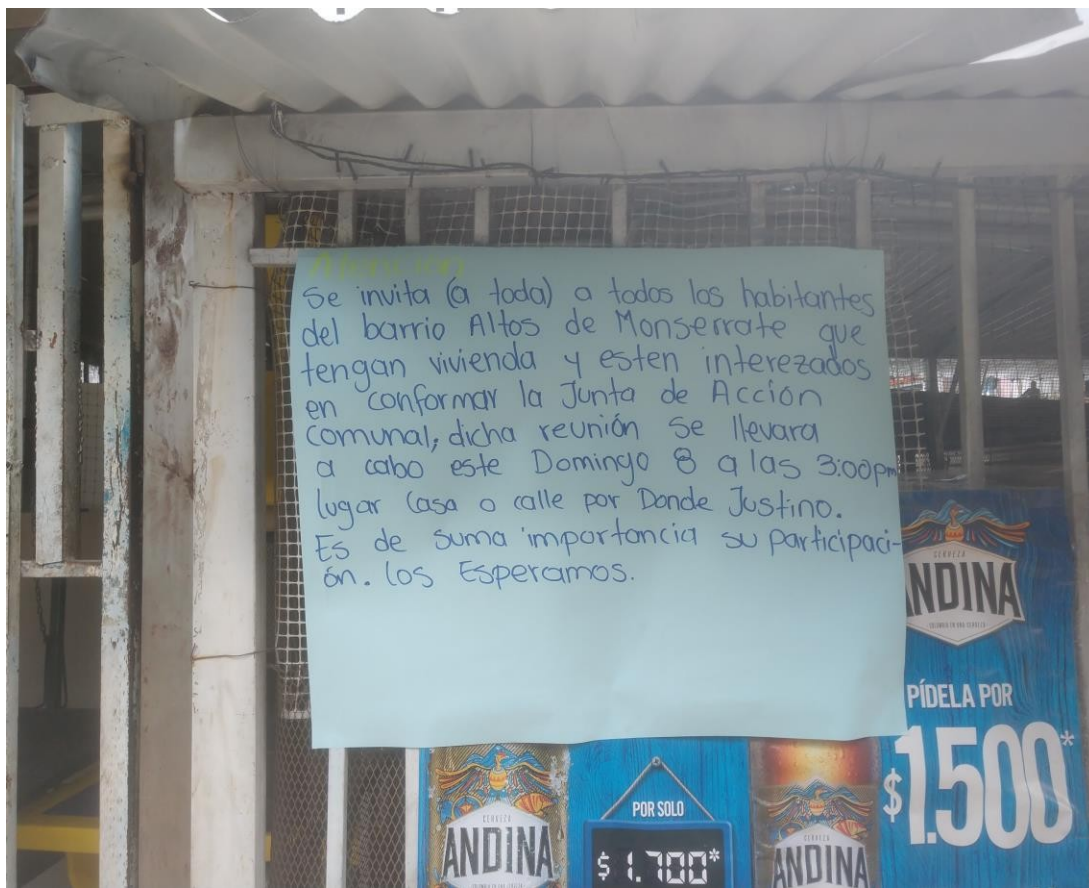 Atención
Se invita (a toda) a todos los habitantes
del barrio Altos de Monserrate que
tengan vivienda y esten interezados
en conformar la Junta de Acción
comunal, dicha reunión se llevara
a cabo este Domingo 8 a las 3:00pm
lugar Casa o calle por Donde Justino.
Es de suma importancia su participaci-
ón. los Esperamos.
CERVEZA
ANDINA
PÍDELA POR
$1.500*
CERVEZA
ANDINA
POR SOLO
$1.700*
CERVEZA
ANDINA